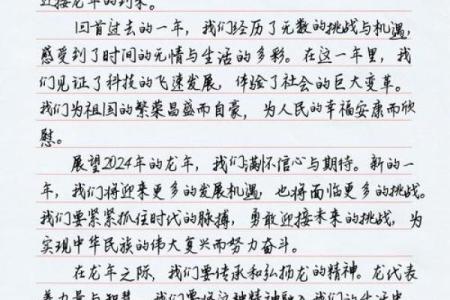 迎接龙年的到来。
回首过去的一年，我们经历了无数的挑战与机遇，
感受到了时间的无情与生活的多彩。在这一年里，我
们见证了科技的飞速发展，体验了社会的巨大变革。
我们为祖国的繁荣昌盛而自豪，为人民的幸福安康而欣
慰。
展望2024年的龙年，我们满怀信心与期待。新的一
年，我们将迎来更多的发展机遇，也将面临更多的挑战。
我们要紧紧抓住时代的脉搏，勇敢迎接未来的挑战，为
实现中华民族的伟大复兴而努力奋斗。
在龙年之际，我们要传承和弘扬龙的精神。龙代表
着力量与智慧，我们要将这种精神融入我们的生活中